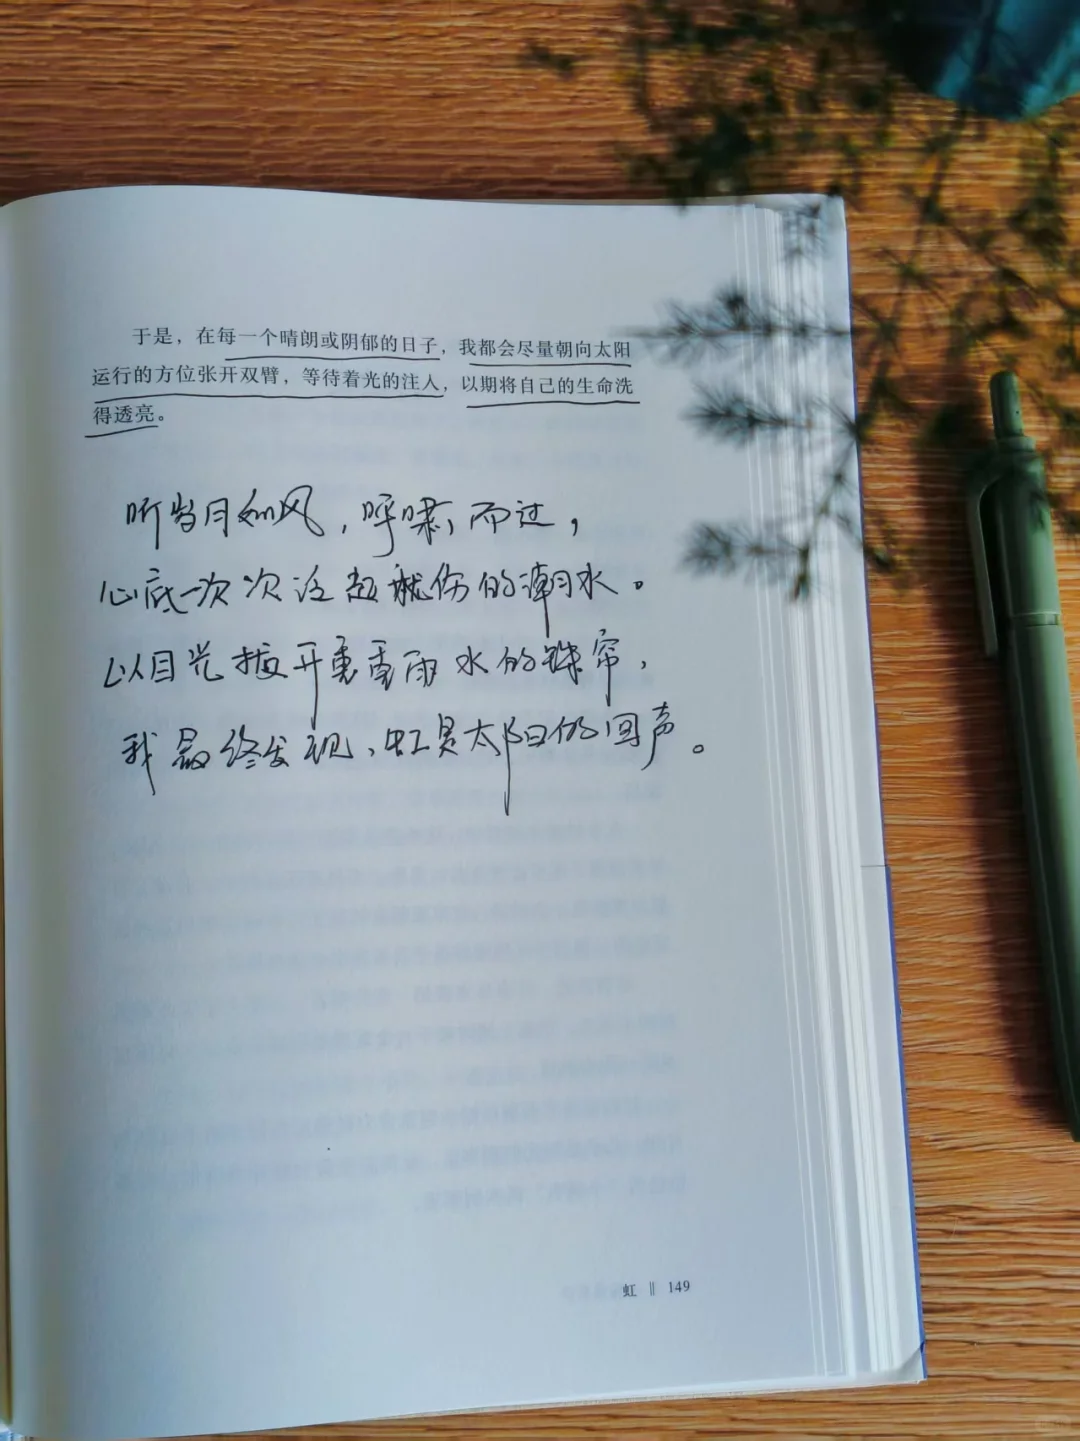 于是，在每一个晴朗或阴郁的日子，我都会尽量朝向太阳
运行的方位张开双臂，等待着光的注入，以期将自己的生命洗
得透亮。
听岁月如风，呼啸而过，
心底一次次泛起忧伤的潮水。
以目光拨开重重雨水的珠帘，
我最终发现，虹是太阳的回声。
虹 ‖ 149